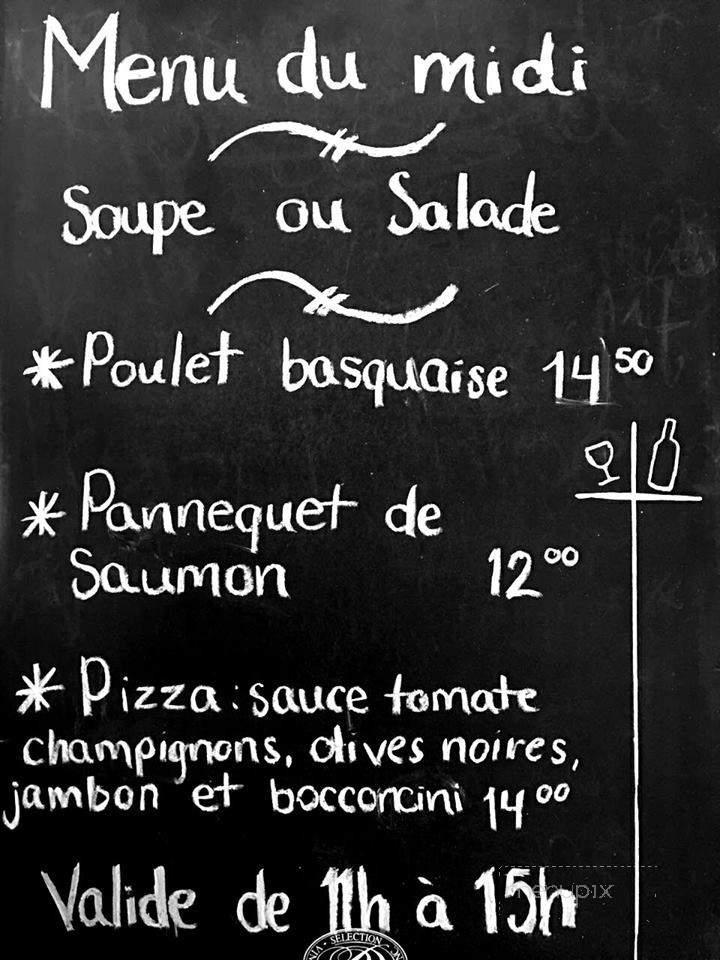 Menu du midi
Soupe ou Salade
*Poulet basquaise 14 50
*Pannequet de
Saumon 12 00
*Pizza: sauce tomate
champignons, olives noires,
jambon et bocconcini 14 00
Valide de 11h à 15h
SELECTION